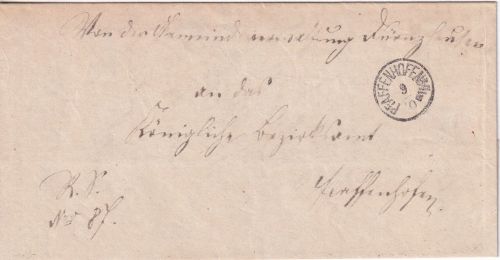 Von der Gemeindeverwaltung Dürnzhausen
PFAFFENHOFEN
9
an das
Königliche Bezirksamt
Pfaffenhofen.
R. S.
No 87.